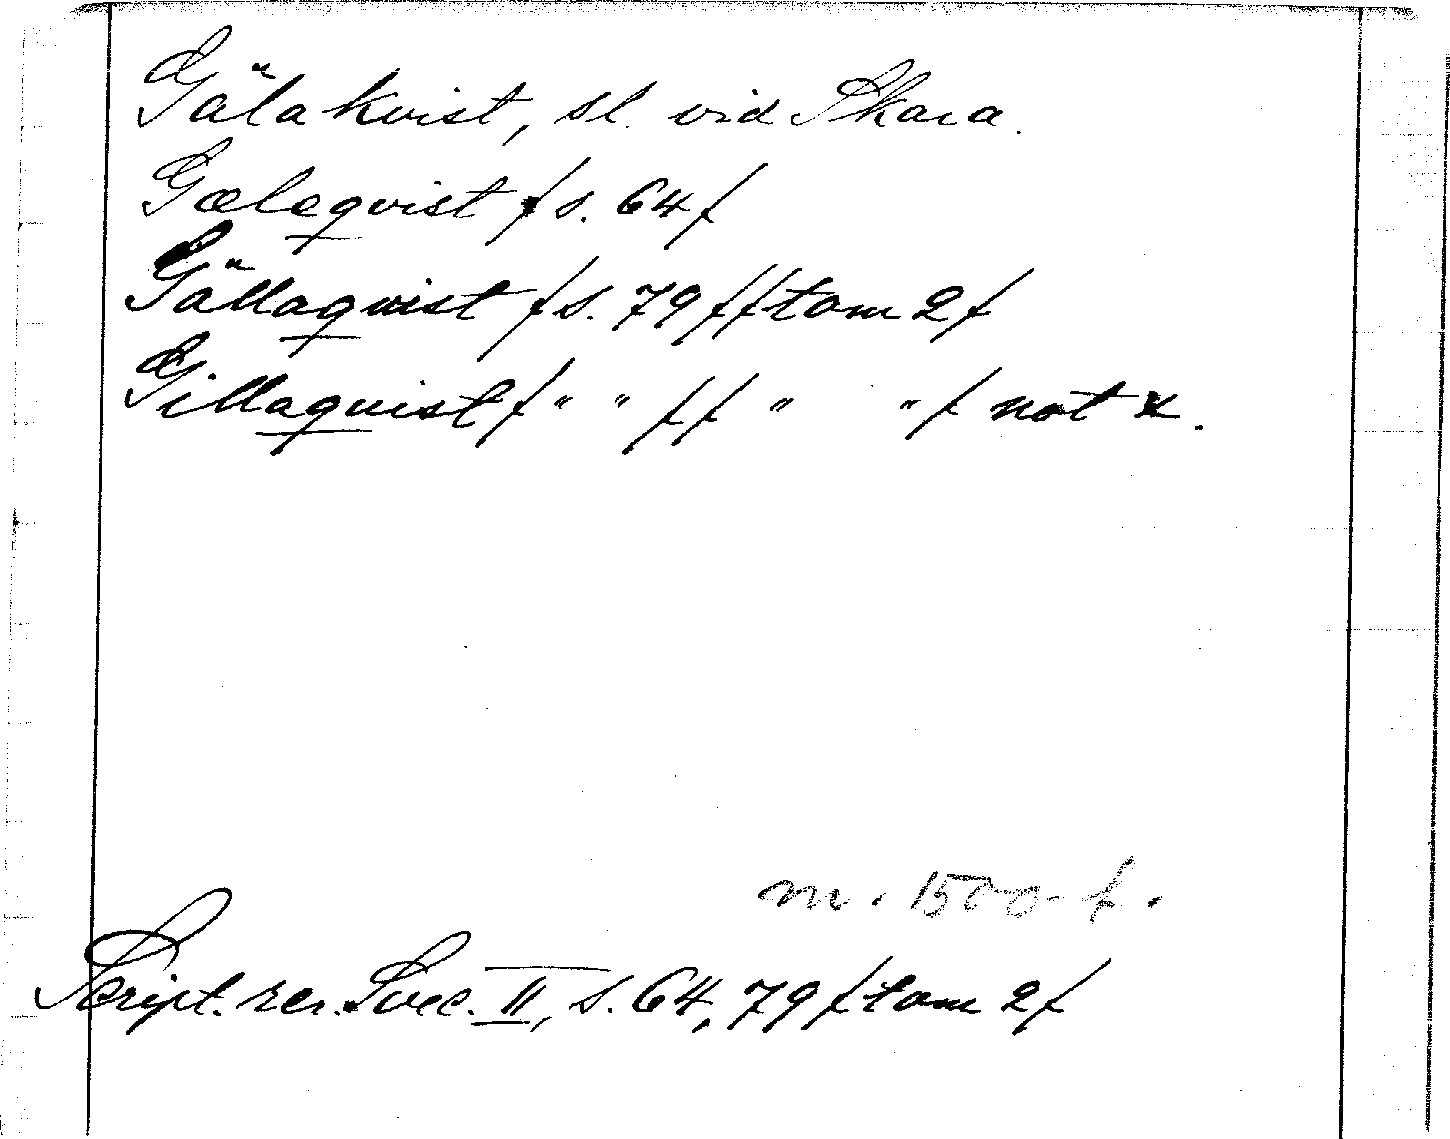 Gälakvist, sl. vid Skara.
Gælaqvist /s. 64/
Gällaqvist /s. 79 //tom 2/
Gillaqvist / " " // " " / not x.
m. 1500-t.
Script. rer. Svec. II, s. 64, 79 /tom 2/